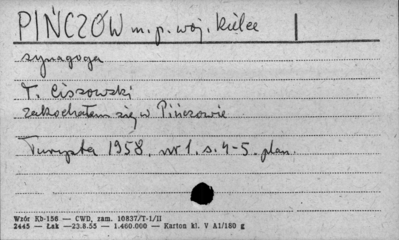 PIŃCZÓW m.p. woj. Kielce
synagoga
T. Cissowski
zakochałem się w Pińczowie
Turysta 1958, nr 1. s. 4-5. plan.
Wzór Kb-156 — CWD, zam. 10837/T-1/II
2445 — Łak —23.8.55 — 1.460.000 — Karton kl. V A1/180 g